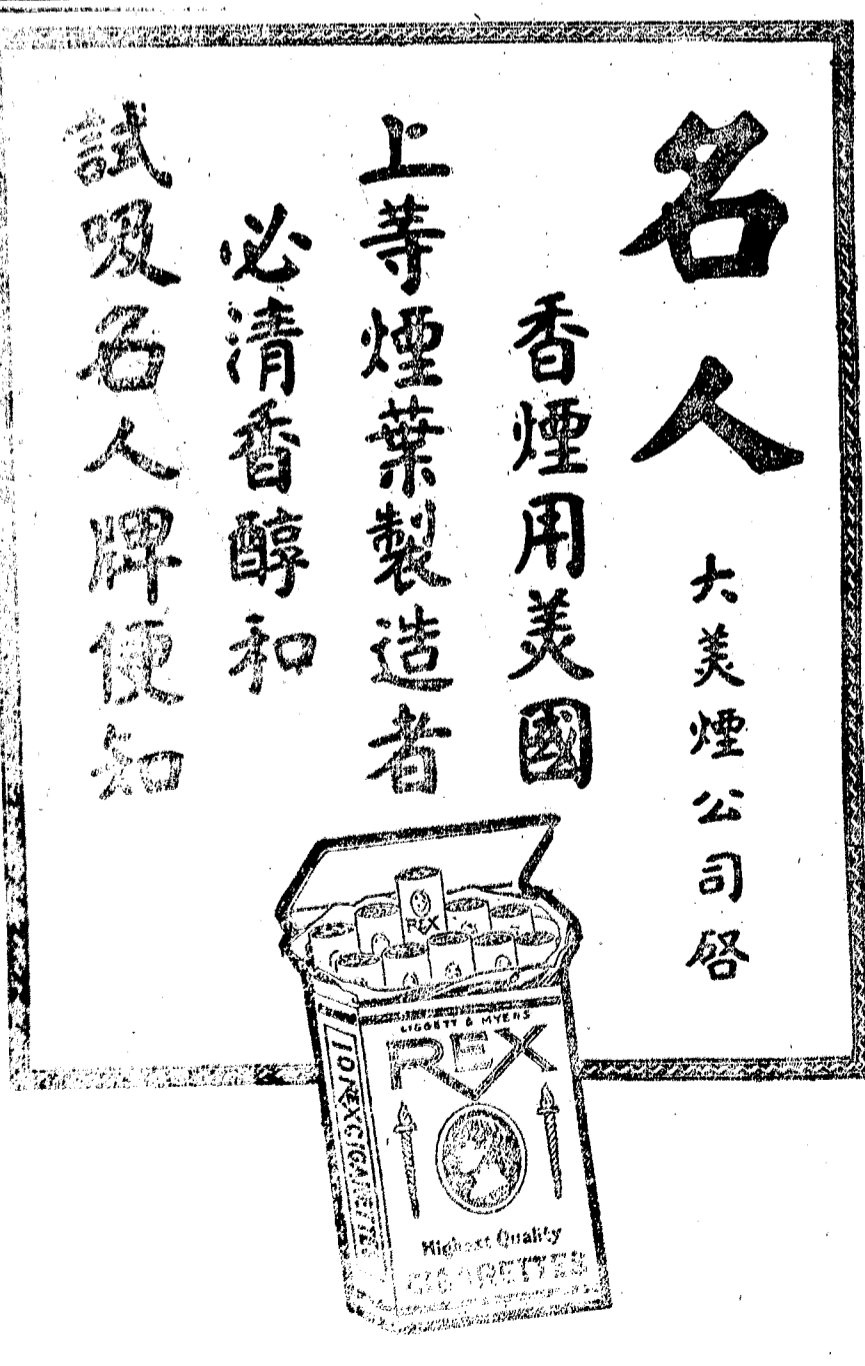 名人
大美煙公司啓
香煙用美國
上等煙葉製造者
必清香醇和
試吸名人牌便知
REX
LIGGETT & MYERS
REX
Highest Quality
CIGARETTES
10 REX CIGARETTES